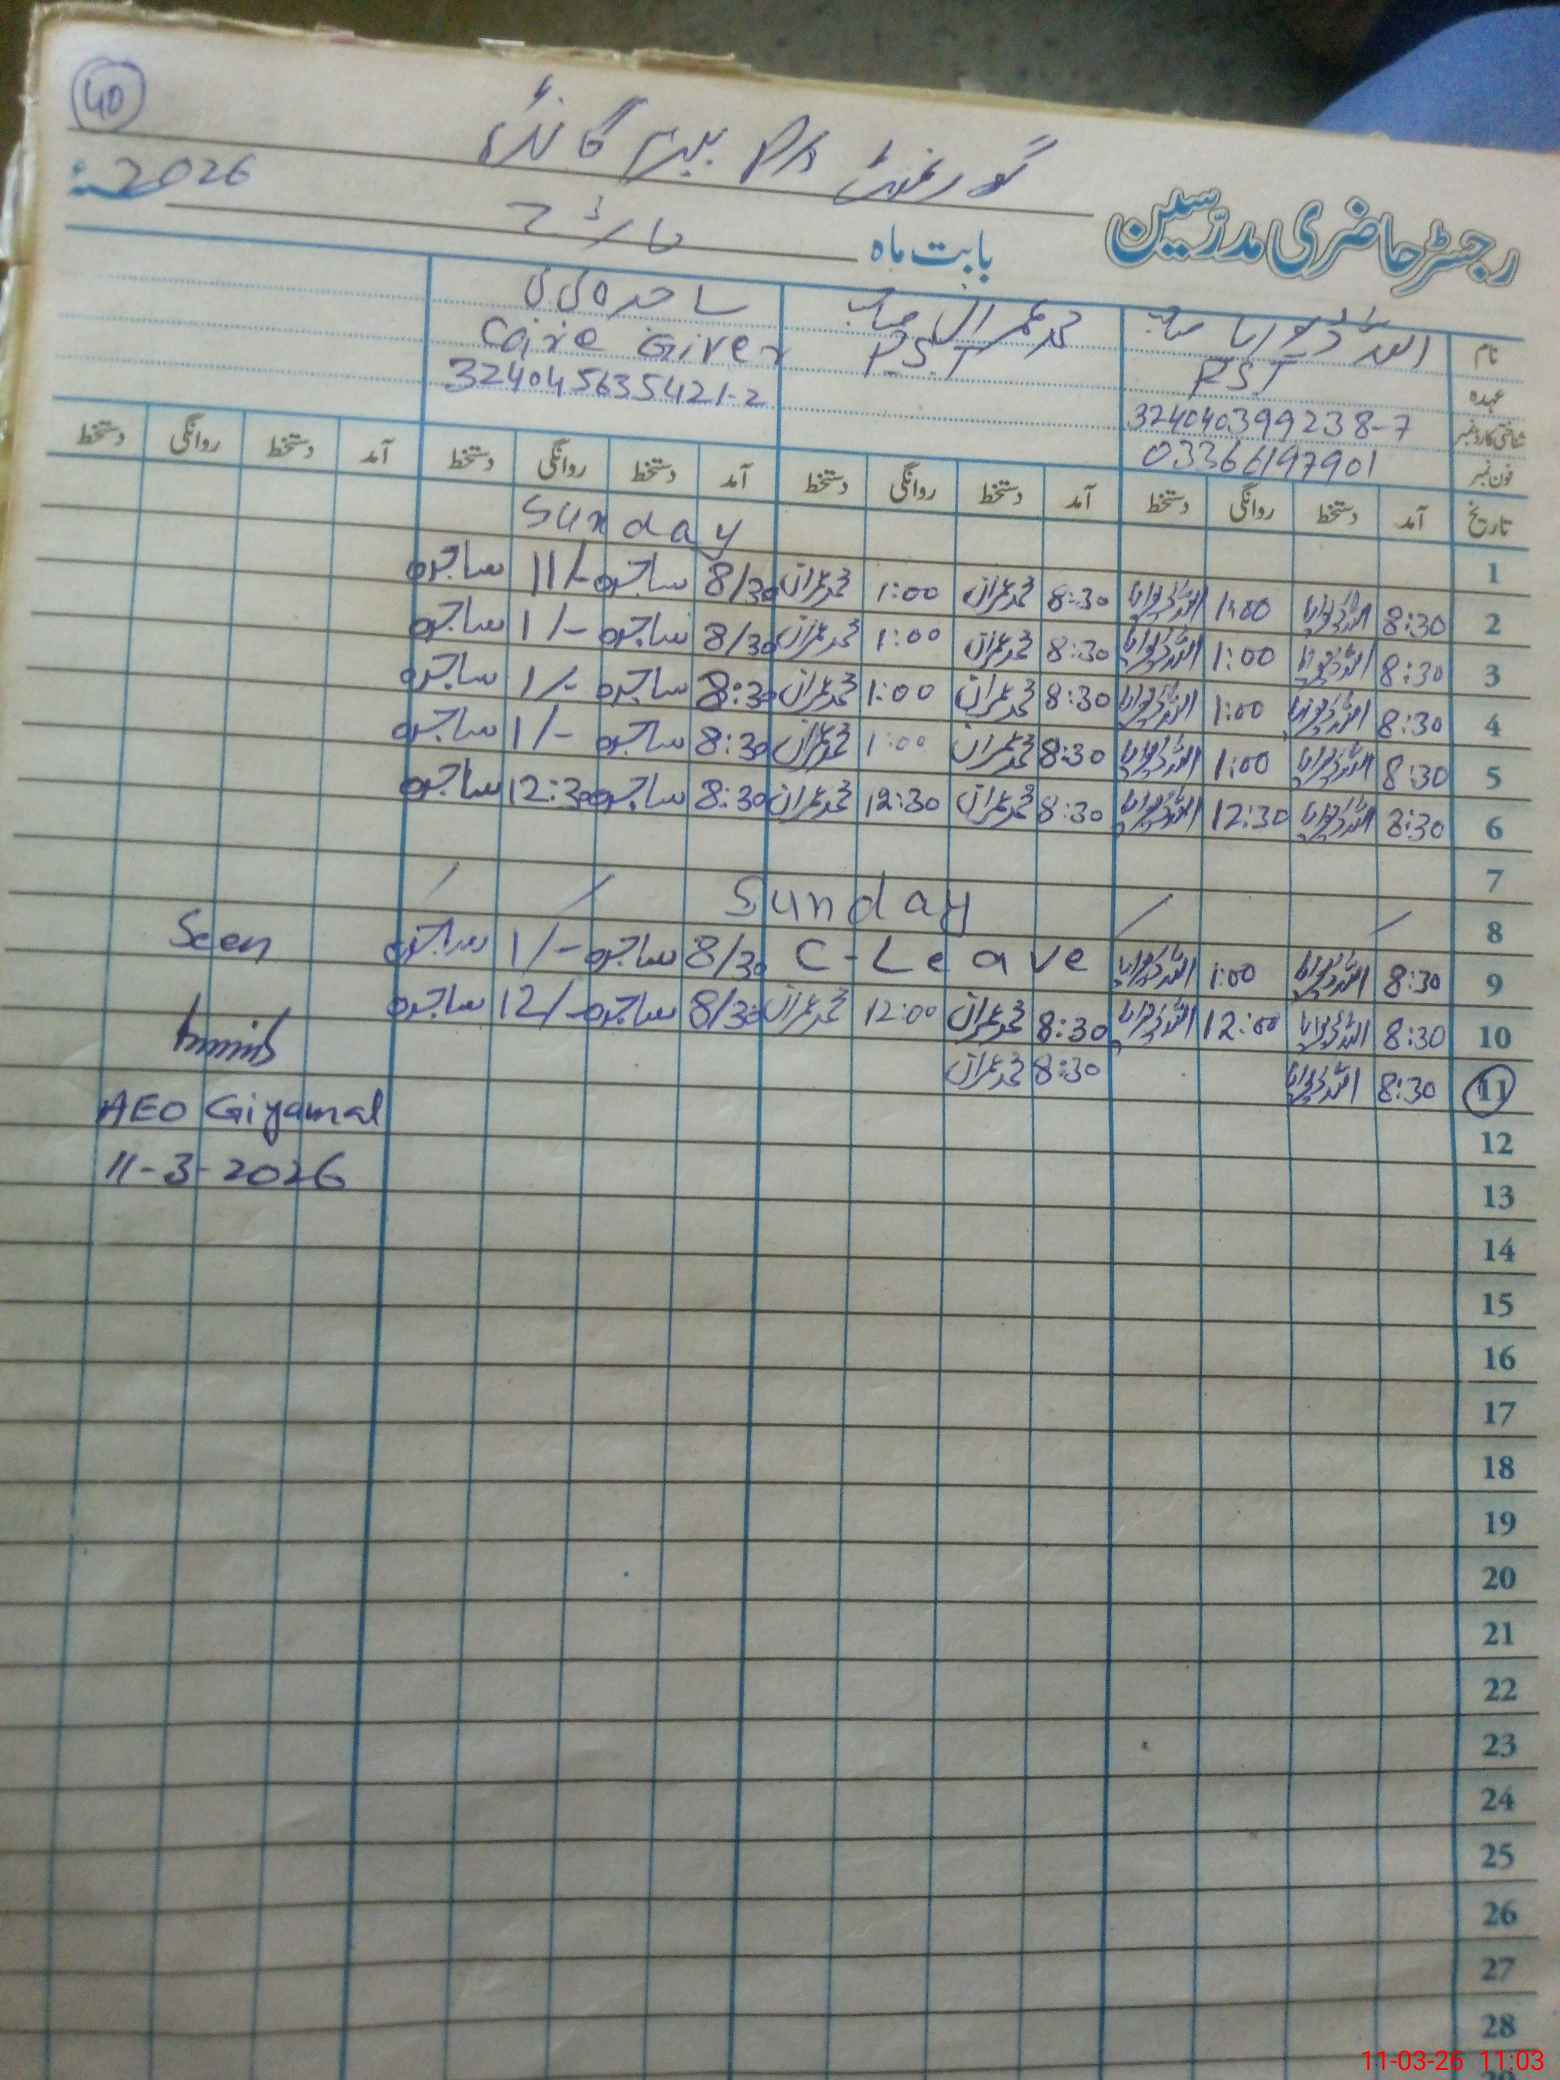 40
گورنمنٹ P/S
2026
رجسٹر حاضری مدرسین بابت ماہ مارچ
نام اللہ ڈیوایا صاحب محمد عمران صاحب ساجدہ بی بی
عہدہ PST P.S.T Care Giver
شناختی کارڈ نمبر 324040399238-7 324045635421-2
فون نمبر 03366197901
تاریخ آمد دستخط روانگی دستخط آمد دستخط روانگی دستخط آمد دستخط روانگی دستخط آمد دستخط روانگی دستخط
1 Sunday
2 8:30 اللہ ڈیوایا 1:00 اللہ ڈیوایا 8:30 محمد عمران 1:00 محمد عمران 8/30 ساجدہ 11/- ساجدہ
3 8:30 اللہ ڈیوایا 1:00 اللہ ڈیوایا 8:30 محمد عمران 1:00 محمد عمران 8/30 ساجدہ 1/- ساجدہ
4 8:30 اللہ ڈیوایا 1:00 اللہ ڈیوایا 8:30 محمد عمران 1:00 محمد عمران 8:30 ساجدہ 1/- ساجدہ
5 8:30 اللہ ڈیوایا 1:00 اللہ ڈیوایا 8:30 محمد عمران 1:00 محمد عمران 8:30 ساجدہ 1/- ساجدہ
6 8:30 اللہ ڈیوایا 12:30 اللہ ڈیوایا 8:30 محمد عمران 12:30 محمد عمران 8:30 ساجدہ 12:30 ساجدہ
7
8 Sunday
9 8:30 اللہ ڈیوایا 1:00 اللہ ڈیوایا C-Leave 8/30 ساجدہ 1/- ساجدہ
10 8:30 اللہ ڈیوایا 12:00 اللہ ڈیوایا 8:30 محمد عمران 12:00 محمد عمران 8/30 ساجدہ 12/- ساجدہ
11 8:30 اللہ ڈیوایا 8:30 محمد عمران
Seen
AEO Giyamal
11-3-2026
12
13
14
15
16
17
18
19
20
21
22
23
24
25
26
27
28
11-03-26 11:03